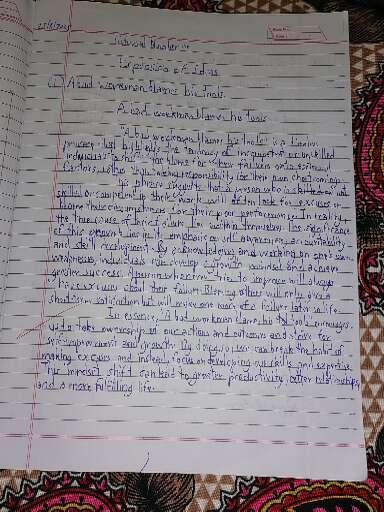 Expansion of Idea
1) A bad workman blames his tools.
A bad workman blames his tools
"A bad workman blames his tools" is a known
proverb that highlights the tendency of incompetent or unskilled
individuals to shift the blame for their failure onto external
factors, rather than taking responsibility for their own shortcomings
This phrase suggests that a person who is untrained, not
skilled or competent in their work will often look for excuses or
blame their circumstances for their poor performance. In reality,
the true cause of their failure lies within themselves. The significance
of this proverb lies in its emphasis on self awareness, accountability
and skill development. By acknowledging and working on one's own
weaknesses, individuals can develop a growth mindset and achieve
greater success. A person who never tries to improve will always
find excuses about their failure. Blaming others will only give a
short term satisfaction but will make one more of a failure later in life
In essence, "A bad workman blames his tools" encourages
us to take ownership of our actions and outcomes and strive for
self-improvement and growth. By doing so, we can break the habit of
making excuses and instead focus on developing our skills and expertise.
This mindset shift can lead to greater productivity, better relationships
and a more fulfilling life.